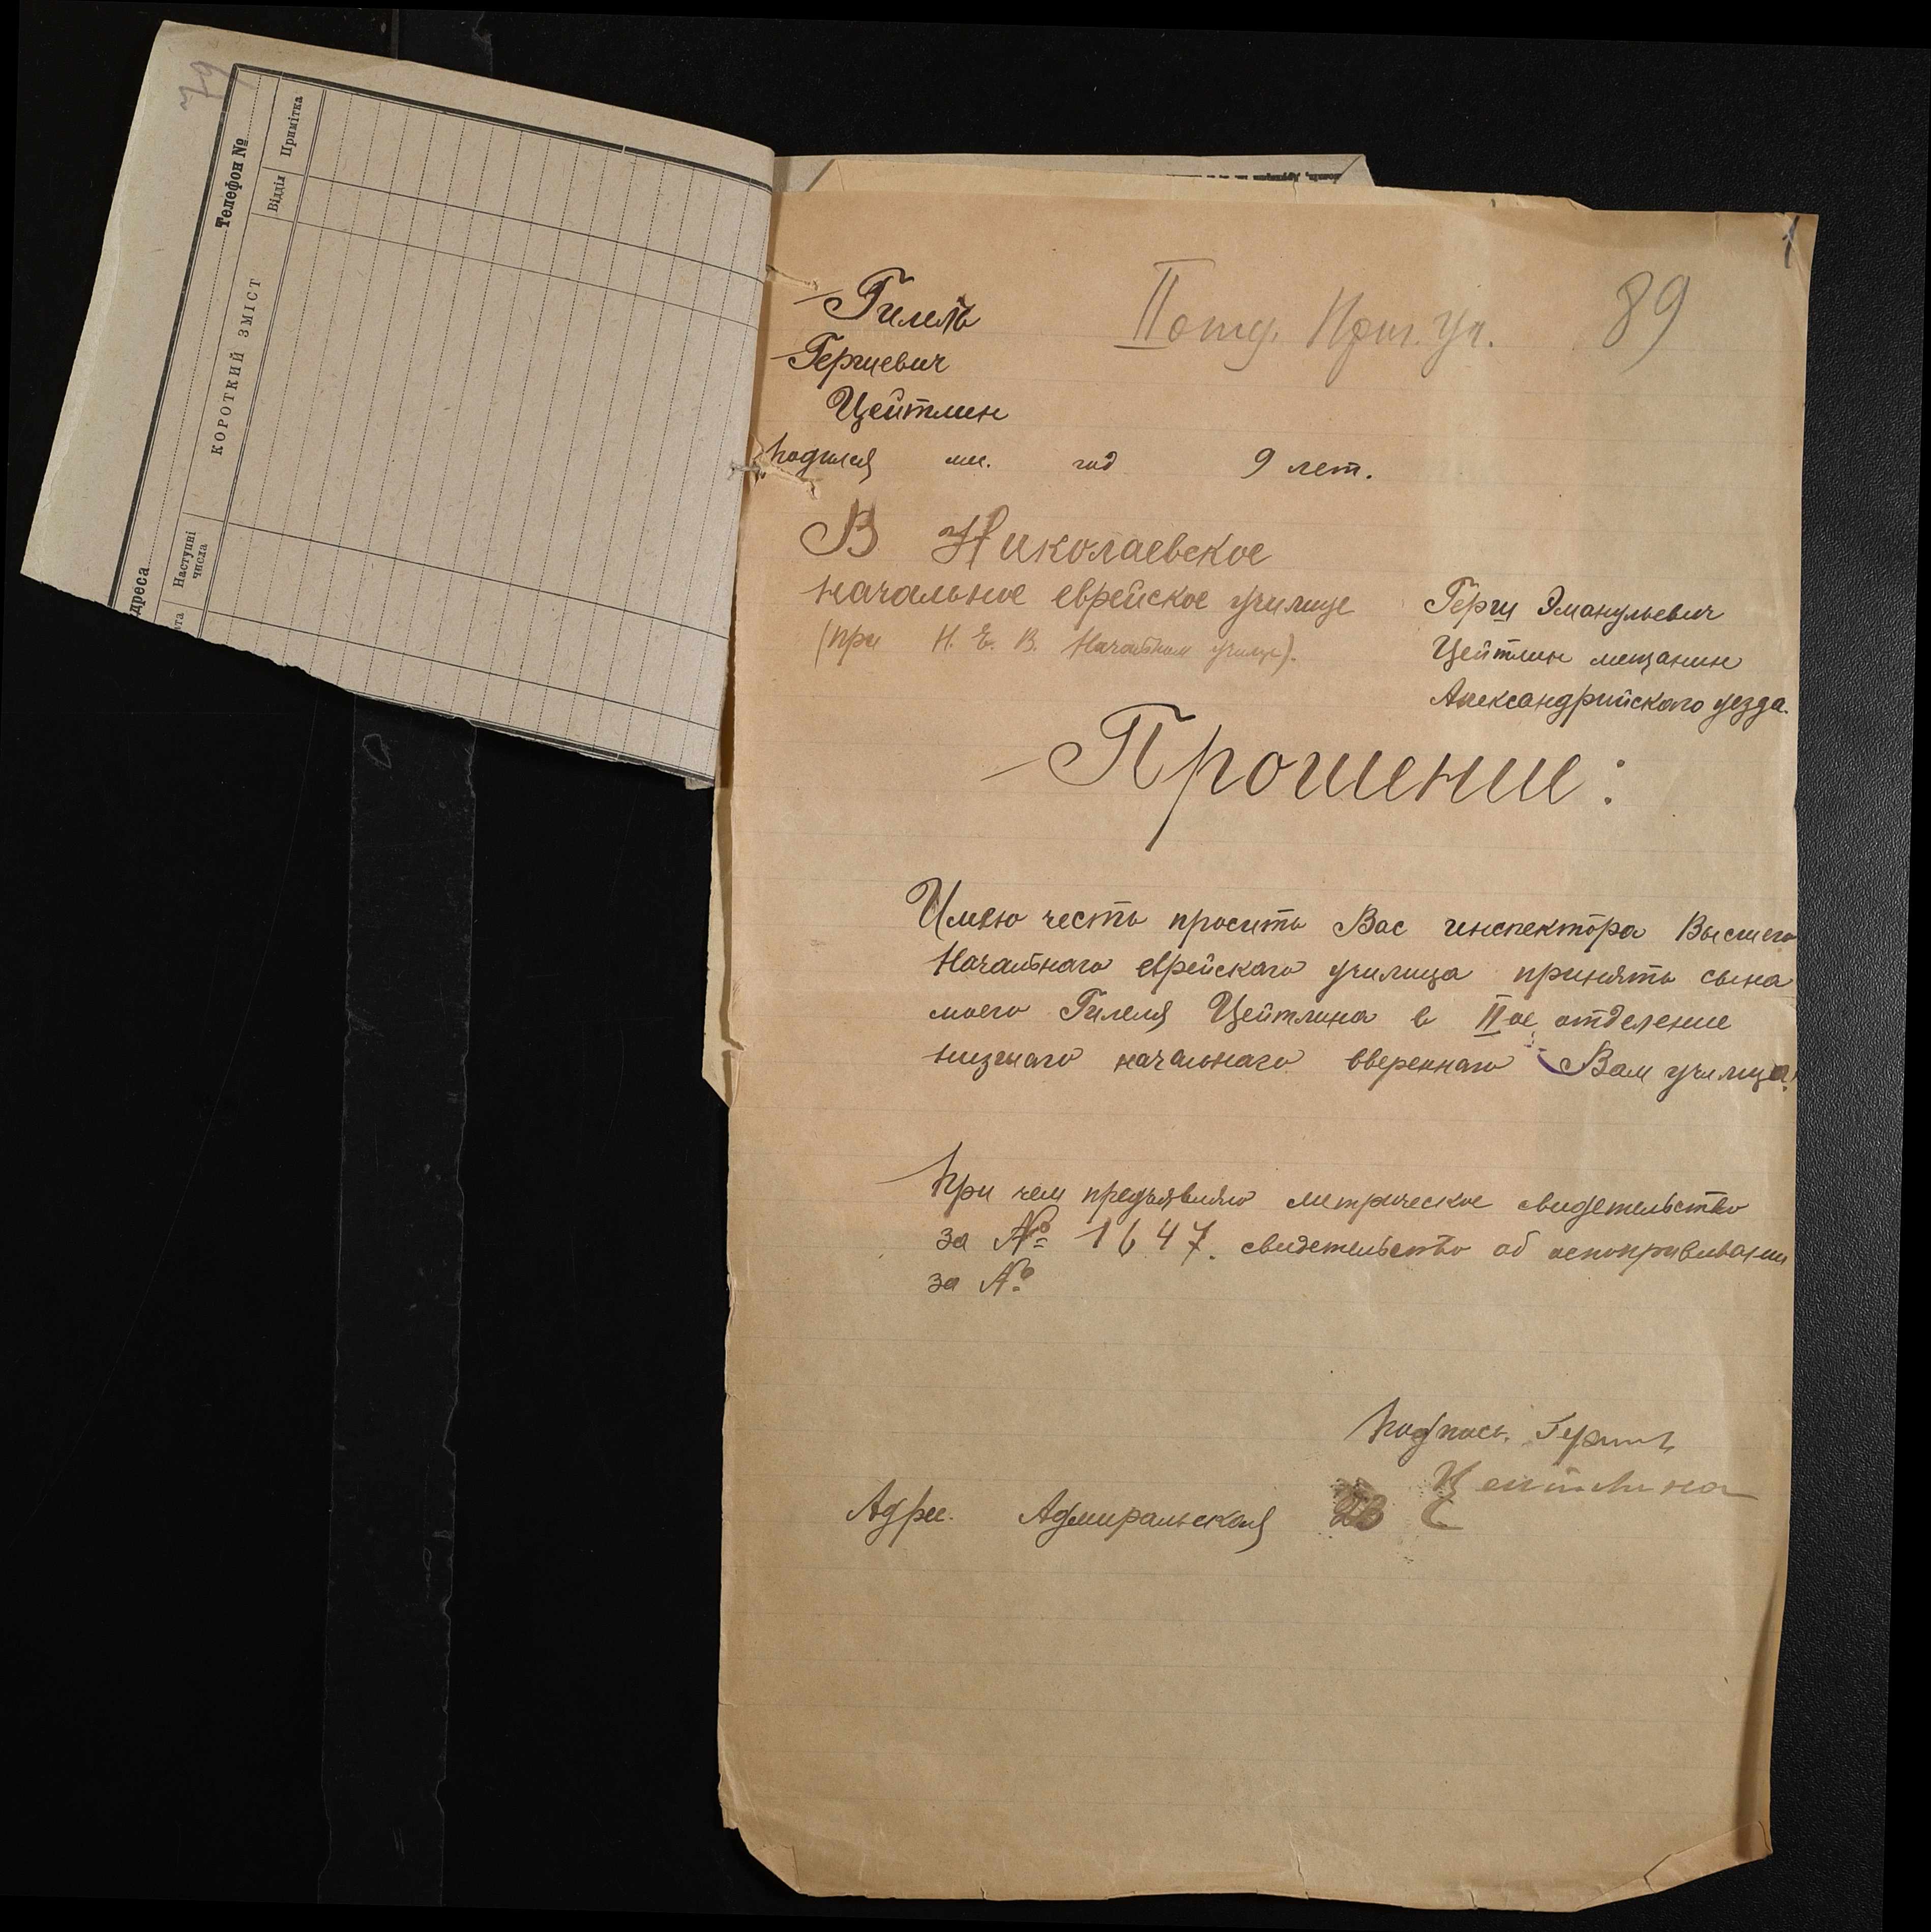 Телефон №
Примітка
Відділ
КОРОТКИЙ ЗМІСТ
Наступні
числа
дреса
ата
1
II отд. Приг. уч. 89
Гилель
Гершевич
Цейтлин
Родился мц. год 9 лет.
В Николаевское
начальное еврейское училище
(при Н. Е. В. Начальном училище).
Герш Эманульевич
Цейтлин мещанин
Александрийского уезда.
Прошение:
Имею честь просить Вас инспектора Высшего
Начальнаго еврейскаго училища принять сына
моего Гилеля Цейтлина в IIое отделение
низшаго начальнаго ввереннаго Вам училища.
При чем предъявляю метрическое свидетельство
за № 1647. свидетельство об оспопрививании
за №
Подпись. Герш
Цейтлина
Адрес. Адмиральская